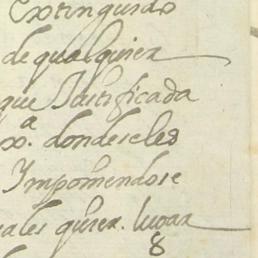 extinguido
de qualquier
que Justificada
xª. donde se les
Imponiendose
eales quier. lugar
8